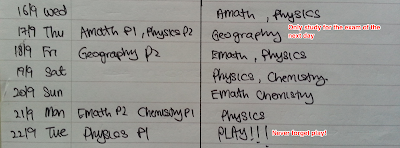 16/9 Wed Amath , Physics
17/9 Thu Amath P1 , Physics P2 Geography
Only study for the exam of the next day
18/9 Fri Geography P2 Emath , Physics
19/9 Sat Physics, Chemistry.
20/9 Sun Emath Chemistry
21/9 Mon Emath P2 Chemistry P1 Physics
22/9 Tue Physics P1 PLAY!!! Never forget play!